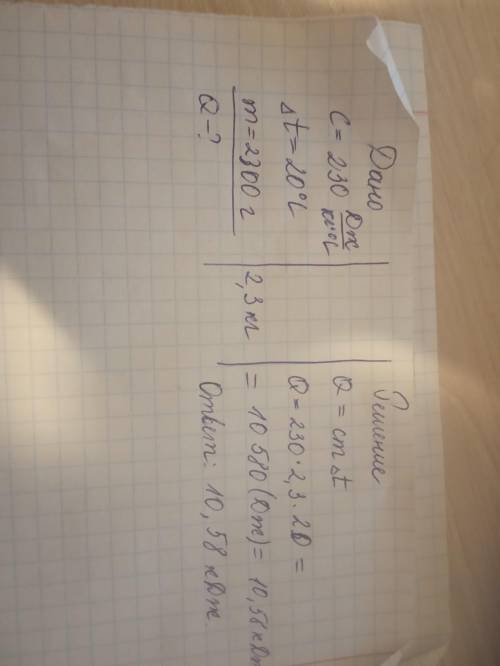 Дано
C = 230 Дж/кг·°C
Δt = 20°C
m = 2300 г
Q - ?
2,3 кг
Решение
Q = cmΔt
Q = 230 · 2,3 · 20 =
= 10 580 (Дж) = 10,58 кДж
Ответ: 10,58 кДж.